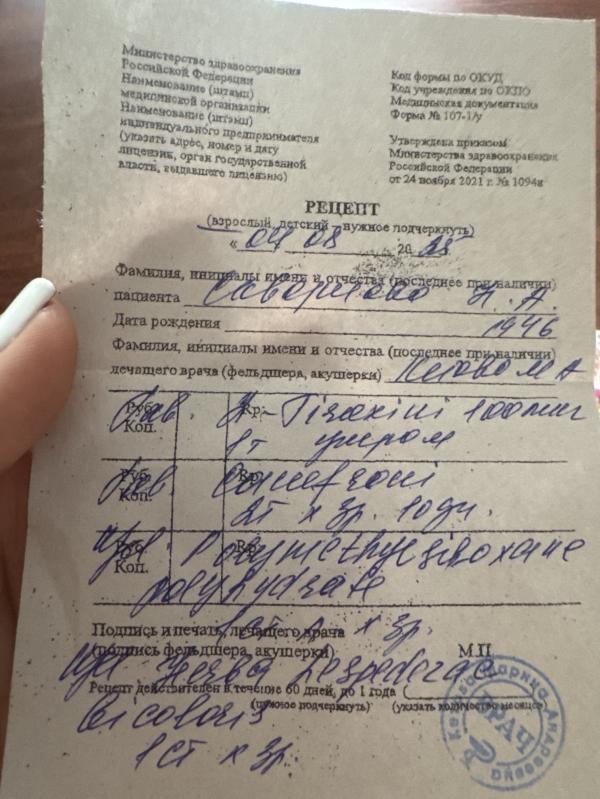 Министерство здравоохранения
Российской Федерации
Наименование (штамп)
медицинской организации
Наименование (штамп)
индивидуального предпринимателя
(указать адрес, номер и дату
лицензии, орган государственной
власти, выдавшего лицензию)
Код формы по ОКУД
Код учреждения по ОКПО
Медицинская документация
Форма № 107-1/у
Утверждена приказом
Министерства здравоохранения
Российской Федерации
от 24 ноября 2021 г. № 1094н
РЕЦЕПТ
(взрослый, детский – нужное подчеркнуть)
« 04 08 20 25
Фамилия, инициалы имени и отчества (последнее при наличии)
пациента А.
Дата рождения 1946
Фамилия, инициалы имени и отчества (последнее при наличии)
лечащего врача (фельдшера, акушерки) М А
Руб. Коп. Rp. Tab. 100 мкг
1т утром
Руб. Коп. Rp. Tab.
2т х 3р.
Руб. Коп. Rp. Polymethylsiloxane
polyhydrate
1 ст х 3р.
Подпись и печать лечащего врача
(подпись фельдшера, акушерки) М.П.
Herba Lespedezae
Рецепт действителен в течение 60 дней, до 1 года (
(нужное подчеркнуть) (указать количество месяцев)
bicoloris
1 ст х 3р.
ВРАЧ